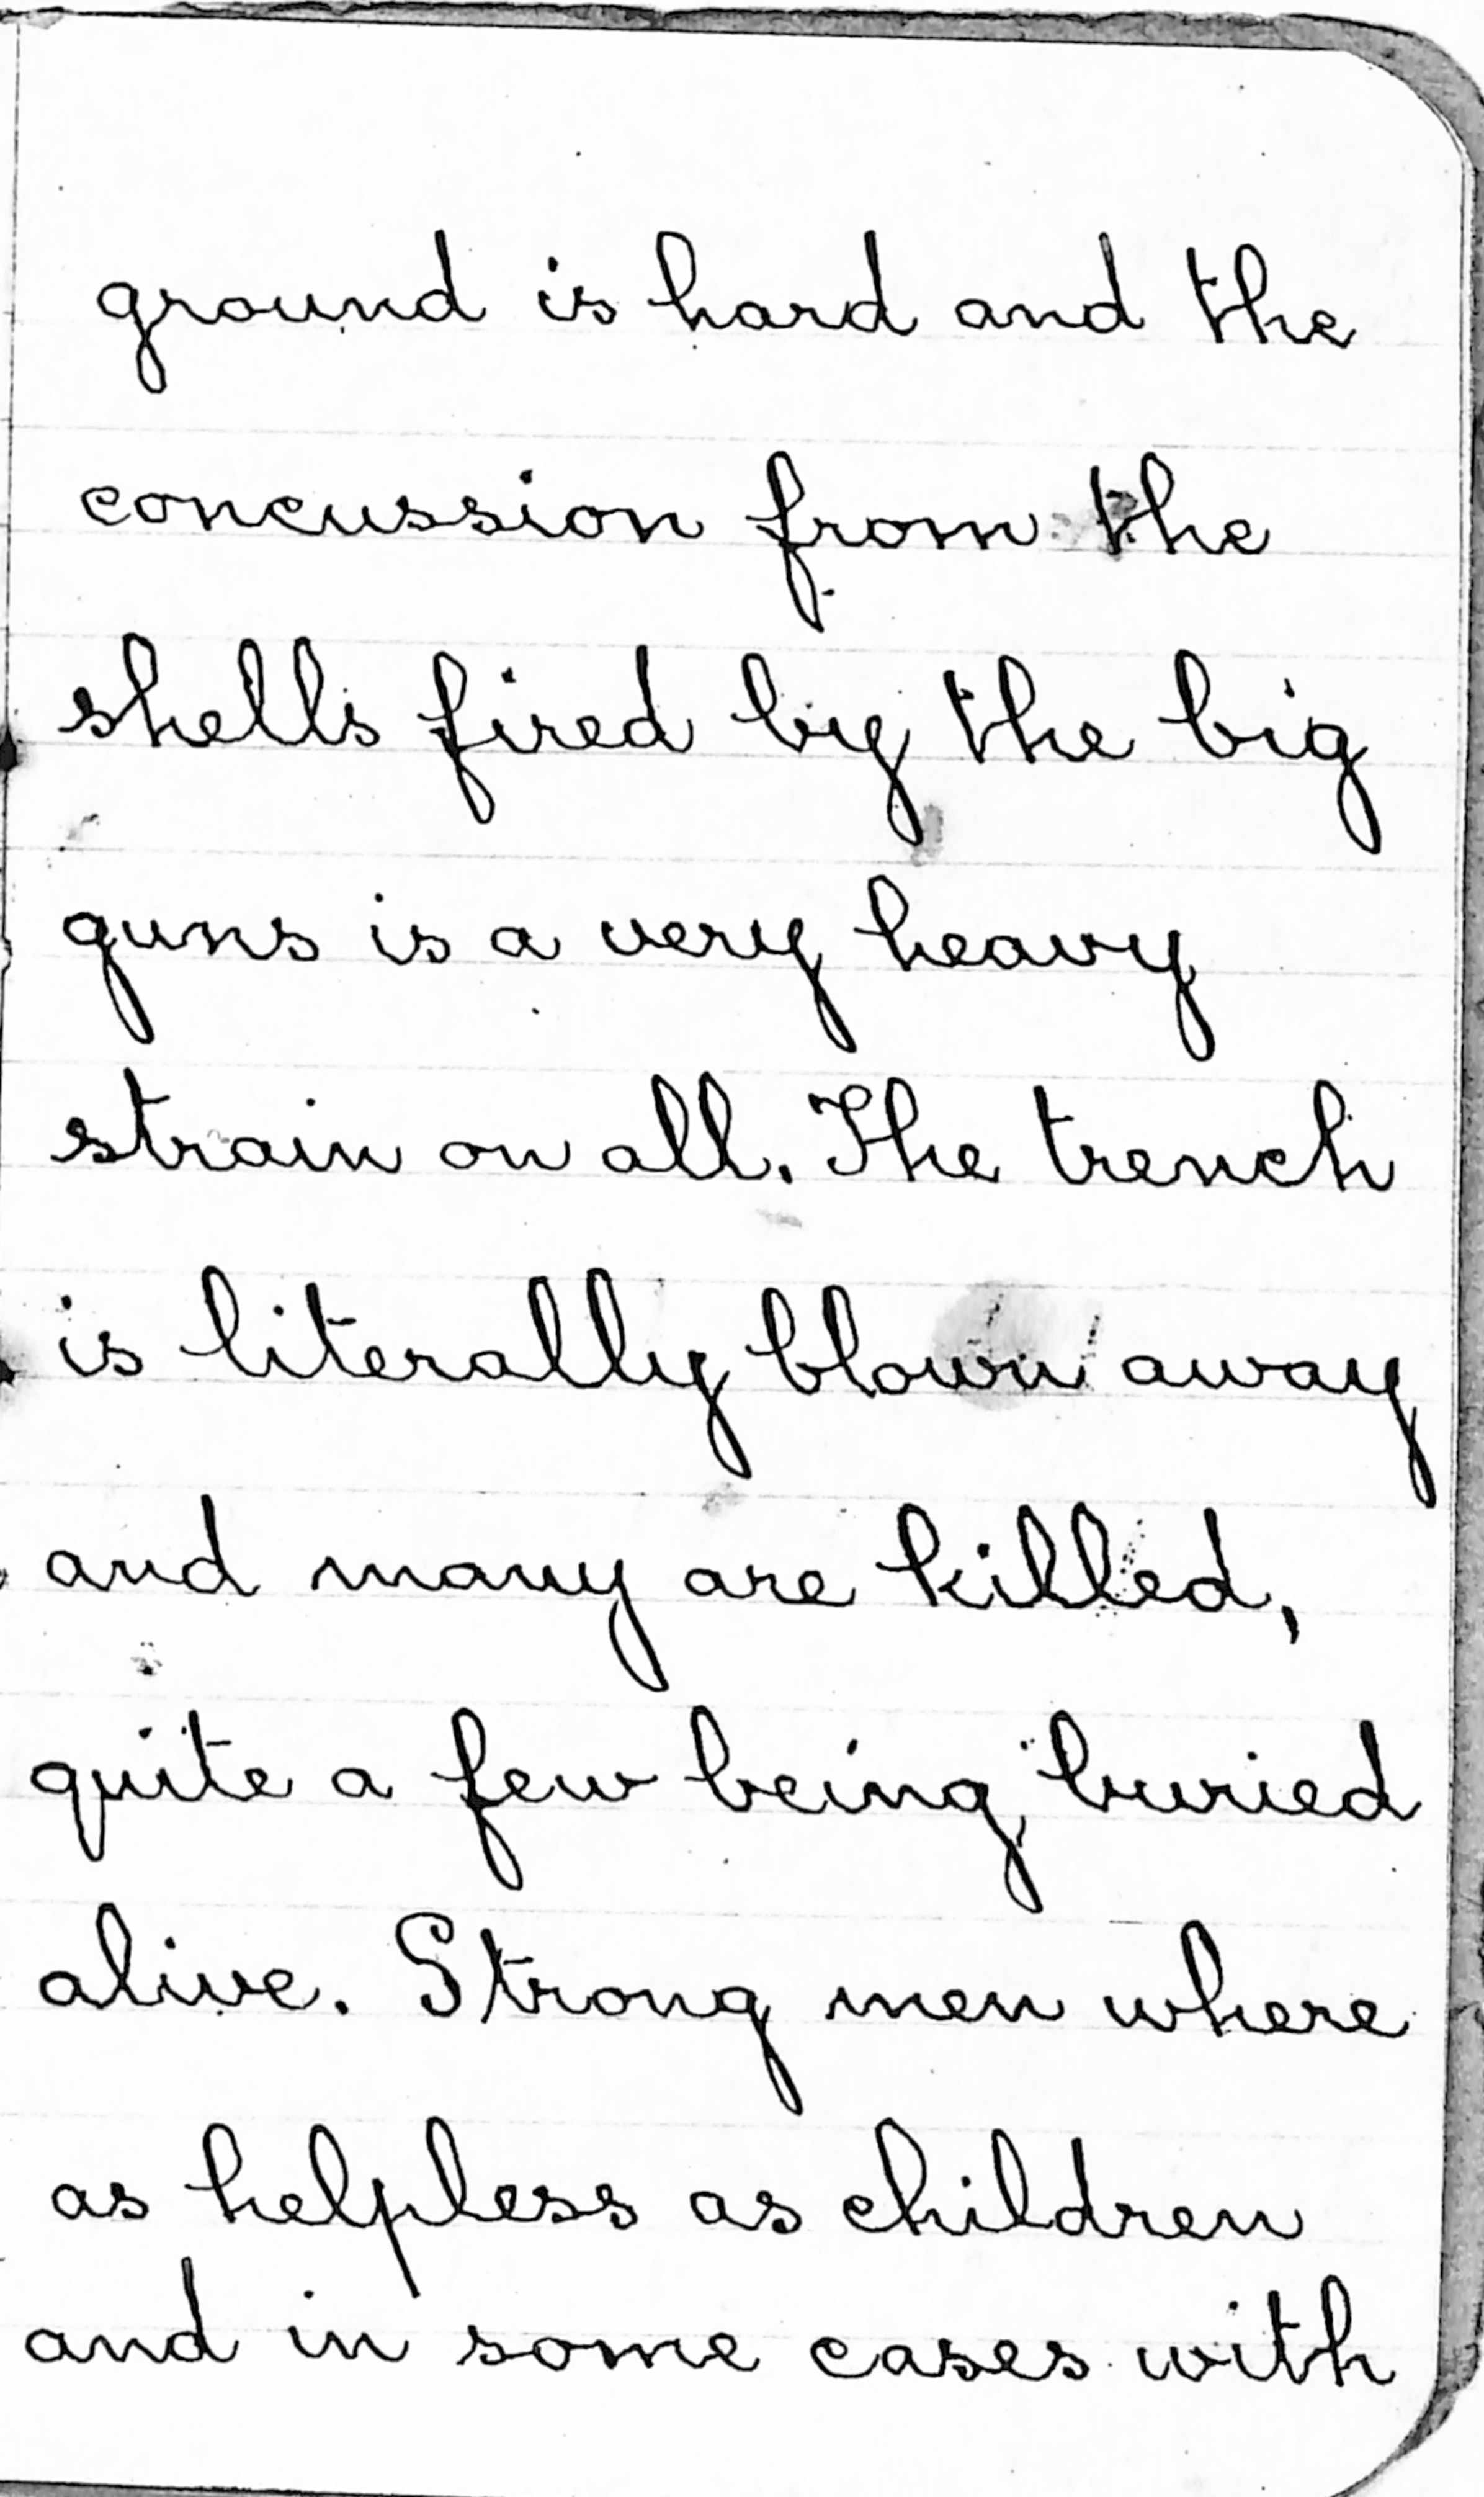 ground is hard and the
concussion from the
shells fired by the big
guns is a very heavy
strain on all. The trench
is literally blown away
and many are killed,
quite a few being buried
alive. Strong men where
as helpless as children
and in some cases with